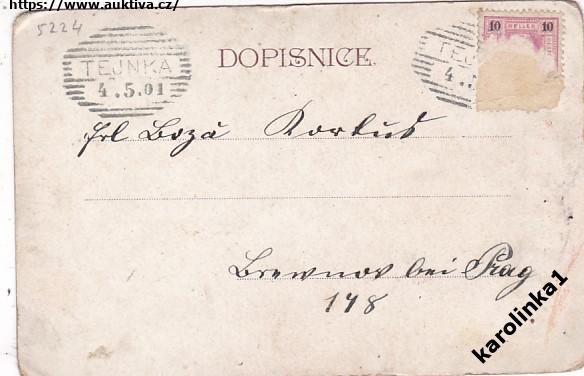 https://www.auktiva.cz/
5224
TEJNKA
4.5.01
DOPISNICE.
TEJ
4.
10 HELLER 10
Frl Boza Korbus
Brewnov bei Prag
148
karolinka1